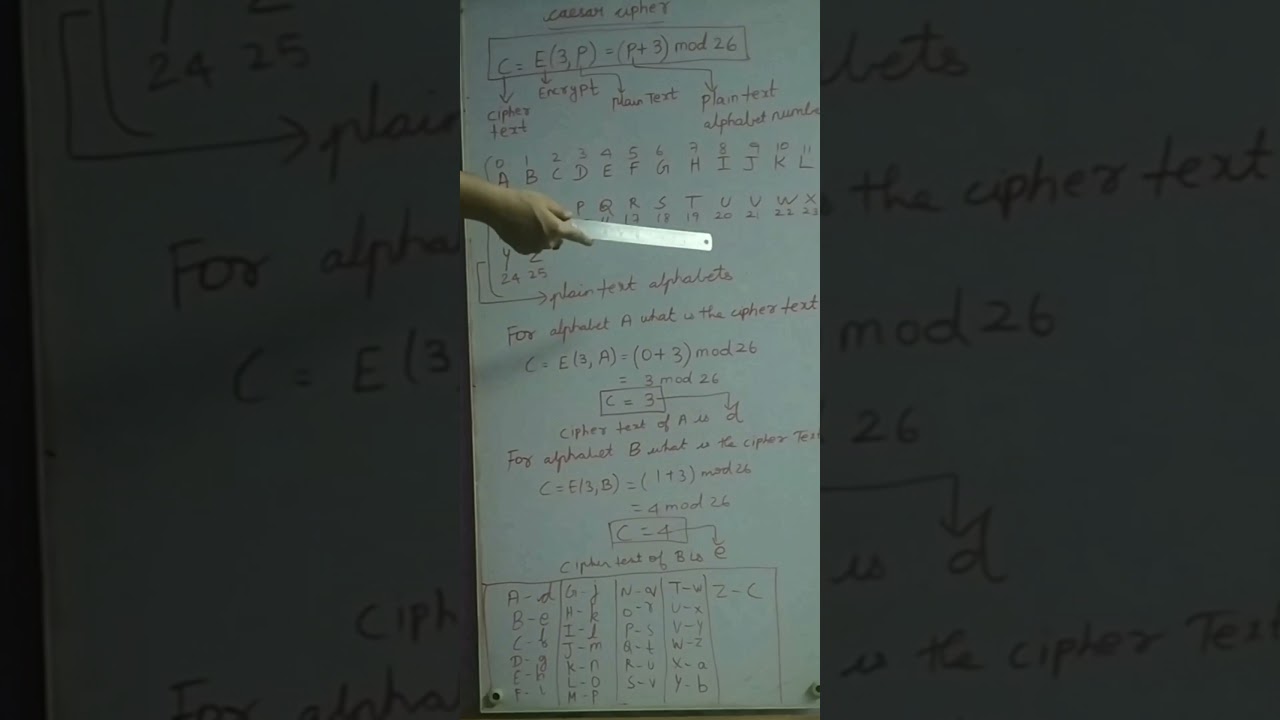 caesar cipher
C = E(3,P) = (P+3) mod 26
cipher text
Encrypt
plain Text
plain text alphabet numbe
0 1 2 3 4 5 6 7 8 9 10 11
A B C D E F G H I J K L
P Q R S T U V W X
17 18 19 20 21 22 23
Y Z
24 25
plain text alphabets
For alphabet A what is the cipher text
C = E(3, A) = (0+3) mod 26
= 3 mod 26
C = 3
cipher text of A is d
For alphabet B what is the cipher Tex
C = E(3,B) = (1+3) mod 26
= 4 mod 26
C = 4
cipher text of B is e
A-d G-j N-q T-w Z-C
B-e H-k O-r U-x
C-f I-l P-s V-y
D-g J-m Q-t W-z
E-h K-n R-u X-a
F-i L-o S-v Y-b
M-p